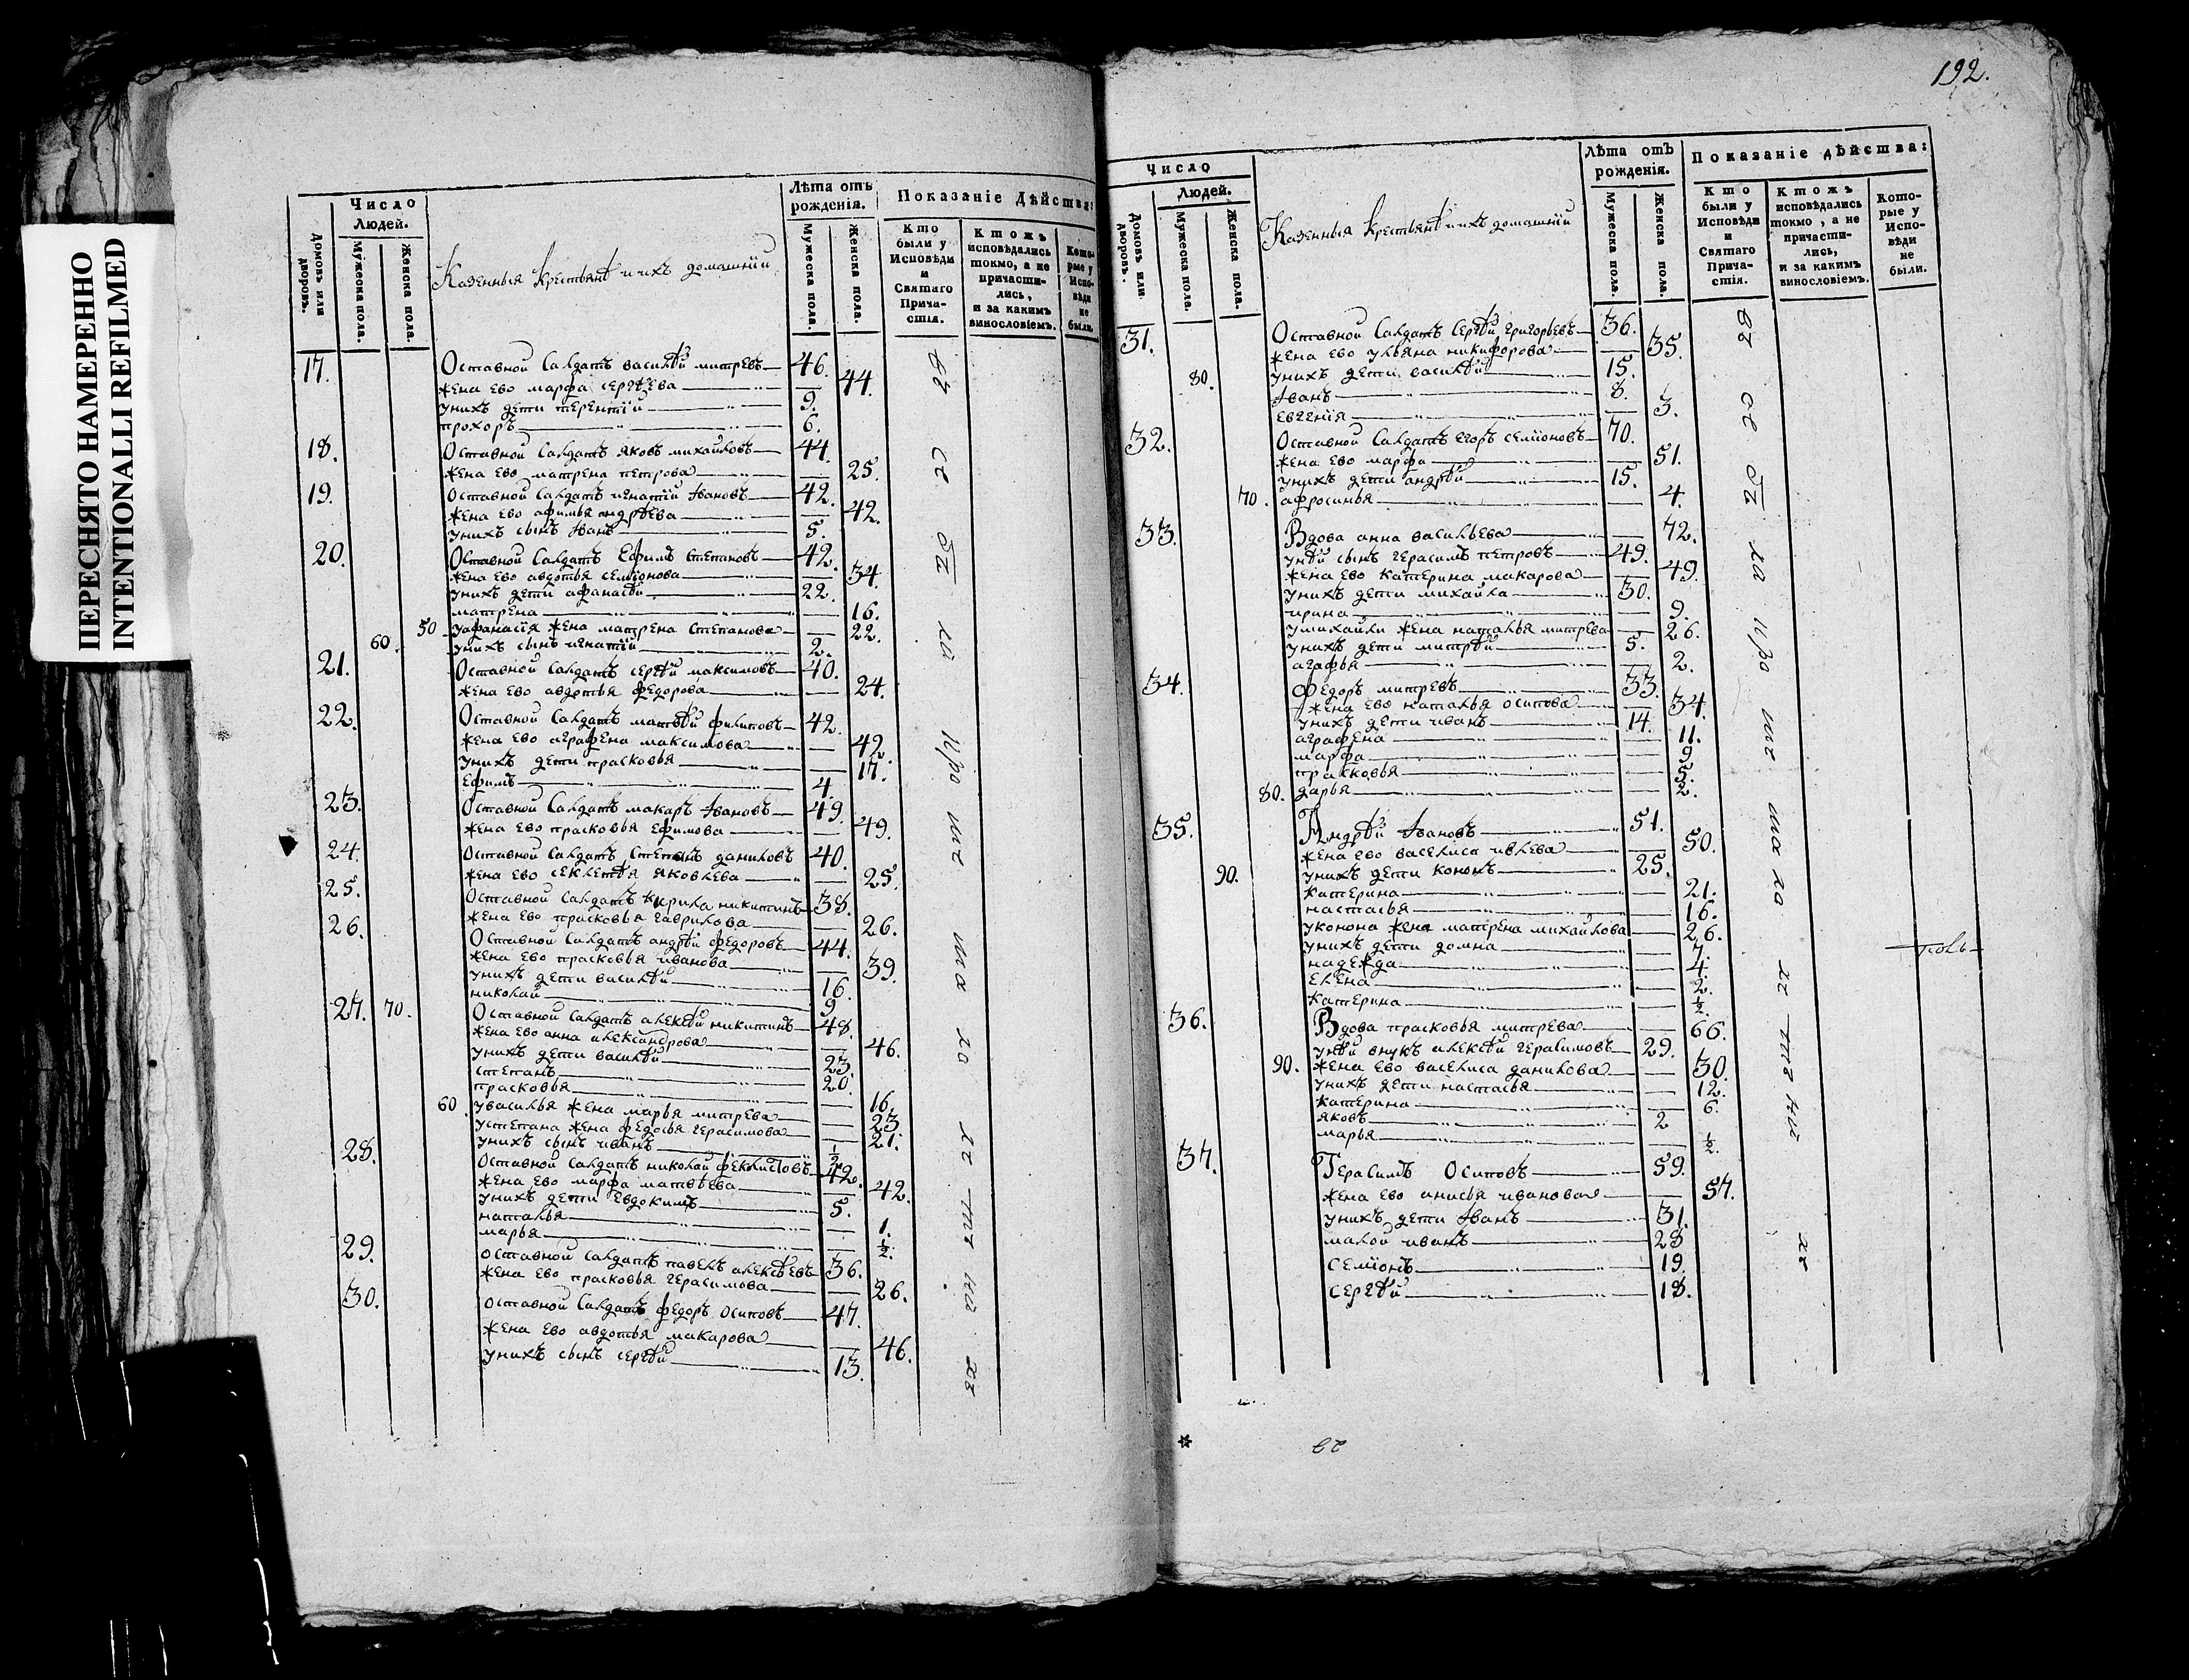 192.
ПЕРЕСНЯТО НАМЕРЕННО
INTENTIONALLI REFILMED
Число
Людей.
Домовъ или дворовъ.
Мужеска пола.
Женска пола.
Казенныя крестьянѣ и ихъ домашнии
Лѣта отъ рождения.
Мужеска пола.
Женска пола.
Показаніе Дѣйства:
Кто были у Исповѣди и Святаго Прича-стія.
Ктожъ исповѣдались токмо, а не причасти-лись, и за какимъ винословіемъ.
Кото-рые у Испо-вѣди не были.
17. Оставной Салдатъ василѣй митревъ 46.
жена ево марфа сергѣева 44.
унихъ дети терентий 9.
прохоръ 6.
18. Оставной Салдатъ яковъ михайловъ 44.
жена ево матрена петрова 25.
19. Оставной Салдатъ игнатий Ивановъ 42.
жена ево афимья андрѣева 42.
унихъ сынъ Иванъ 5.
20. Оставной Салдатъ Ефимъ Степановъ 42.
жена ево авдотья семионова 34.
унихъ дети афанасѣй 22.
матрена 16.
50 уафанасія жена матрена Степанова 22.
60. унихъ сынъ игнатий 2.
21. Оставной Салдатъ сергѣй максимовъ 40.
жена ево авдотья федорова 24.
22. Оставной Салдатъ матвѣй филиповъ 42.
жена ево аграфена максимова 42.
унихъ дети прасковья 17.
Ефимъ 4.
23. Оставной Салдатъ макаръ Ивановъ 49.
жена ево прасковья Ефимова 49.
24. Оставной Салдатъ Степанъ даниловъ 40.
жена ево секлетѣя яковлева 25.
25. Оставной Салдатъ кирила никитинъ 38.
жена ево прасковья гаврилова 26.
26. Оставной Салдатъ андрѣй федоровъ 44.
жена ево прасковья иванова 39.
унихъ дети василѣй 16.
николай 9
27. 70. Оставной Салдатъ алексѣй никитинъ 48.
жена ево анна александрова 46.
унихъ дети василѣй 23.
степанъ 20.
прасковья 16.
60. увасилья жена марья митрева 23
устепана жена федосья герасимова 21.
унихъ сынъ иванъ ½
28. Оставной Салдатъ николай феклистовъ 42.
жена ево марфа матвѣева 42.
унихъ дети Евдокимъ 5.
наталья 1.
марья ½.
29. оставной Салдатъ павелъ алексѣевъ 36.
жена ево прасковья герасимова 26.
30. оставной Салдатъ федоръ осиповъ 47.
жена ево авдотья макарова 46.
унихъ сынъ сергѣй 13.
Число
Людей.
Домовъ или дворовъ.
Мужеска пола.
Женска пола.
Казенныя крестьянѣ и ихъ домашнии
Лѣта отъ рожденія.
Мужеска пола.
Женска пола.
Показаніе дѣйства:
Кто были у Исповѣди и Святаго Прича-стія.
Ктожъ исповѣдались токмо, а не причасти-лись, и за какимъ винословіемъ.
Кото-рые у Испо-вѣди не были.
31. Оставной Салдатъ Сергѣй григорьевъ 36.
жена ево ульяна никифорова 35.
80. унихъ дети василѣй 15.
Иванъ 8.
евгения 3.
32. Оставной Салдатъ егоръ семионовъ 70.
жена ево марфа 51.
унихъ дети андрѣй 15.
70. афросинья 4.
33. Вдова анна васильева 72.
унѣй сынъ герасимъ петровъ 49.
жена ево катерина макарова 49.
унихъ дети михайла 30.
ирина 9.
умихайлы жена наталья митрева 26.
унихъ дети митрѣй 5.
агафья 2.
34. Федоръ митревъ 33.
жена ево наталья осипова 34.
унихъ дети иванъ 14.
аграфена 11.
марфа 9.
прасковья 5.
80. дарья 2.
35. Андрѣй Ивановъ 51.
жена ево василиса ивлева 50.
90. унихъ дети кононъ 25.
катерина 21.
настасья 16.
уконона жена матрена михайлова 26.
унихъ дети домна 7.
надежда 4.
елена 2.
катерина ½.
36. Вдова прасковья митрева 66.
унѣй внукъ алексѣй герасимовъ 29.
90. жена ево василиса данилова 30.
унихъ дети настасья 12.
катерина 6.
яковъ 2
марья ½.
37. Герасимъ Осиповъ 59.
жена ево анисья ивановая 57.
унихъ дети Иванъ 31.
малой иванъ 28
семионъ 19.
сергѣй 18.